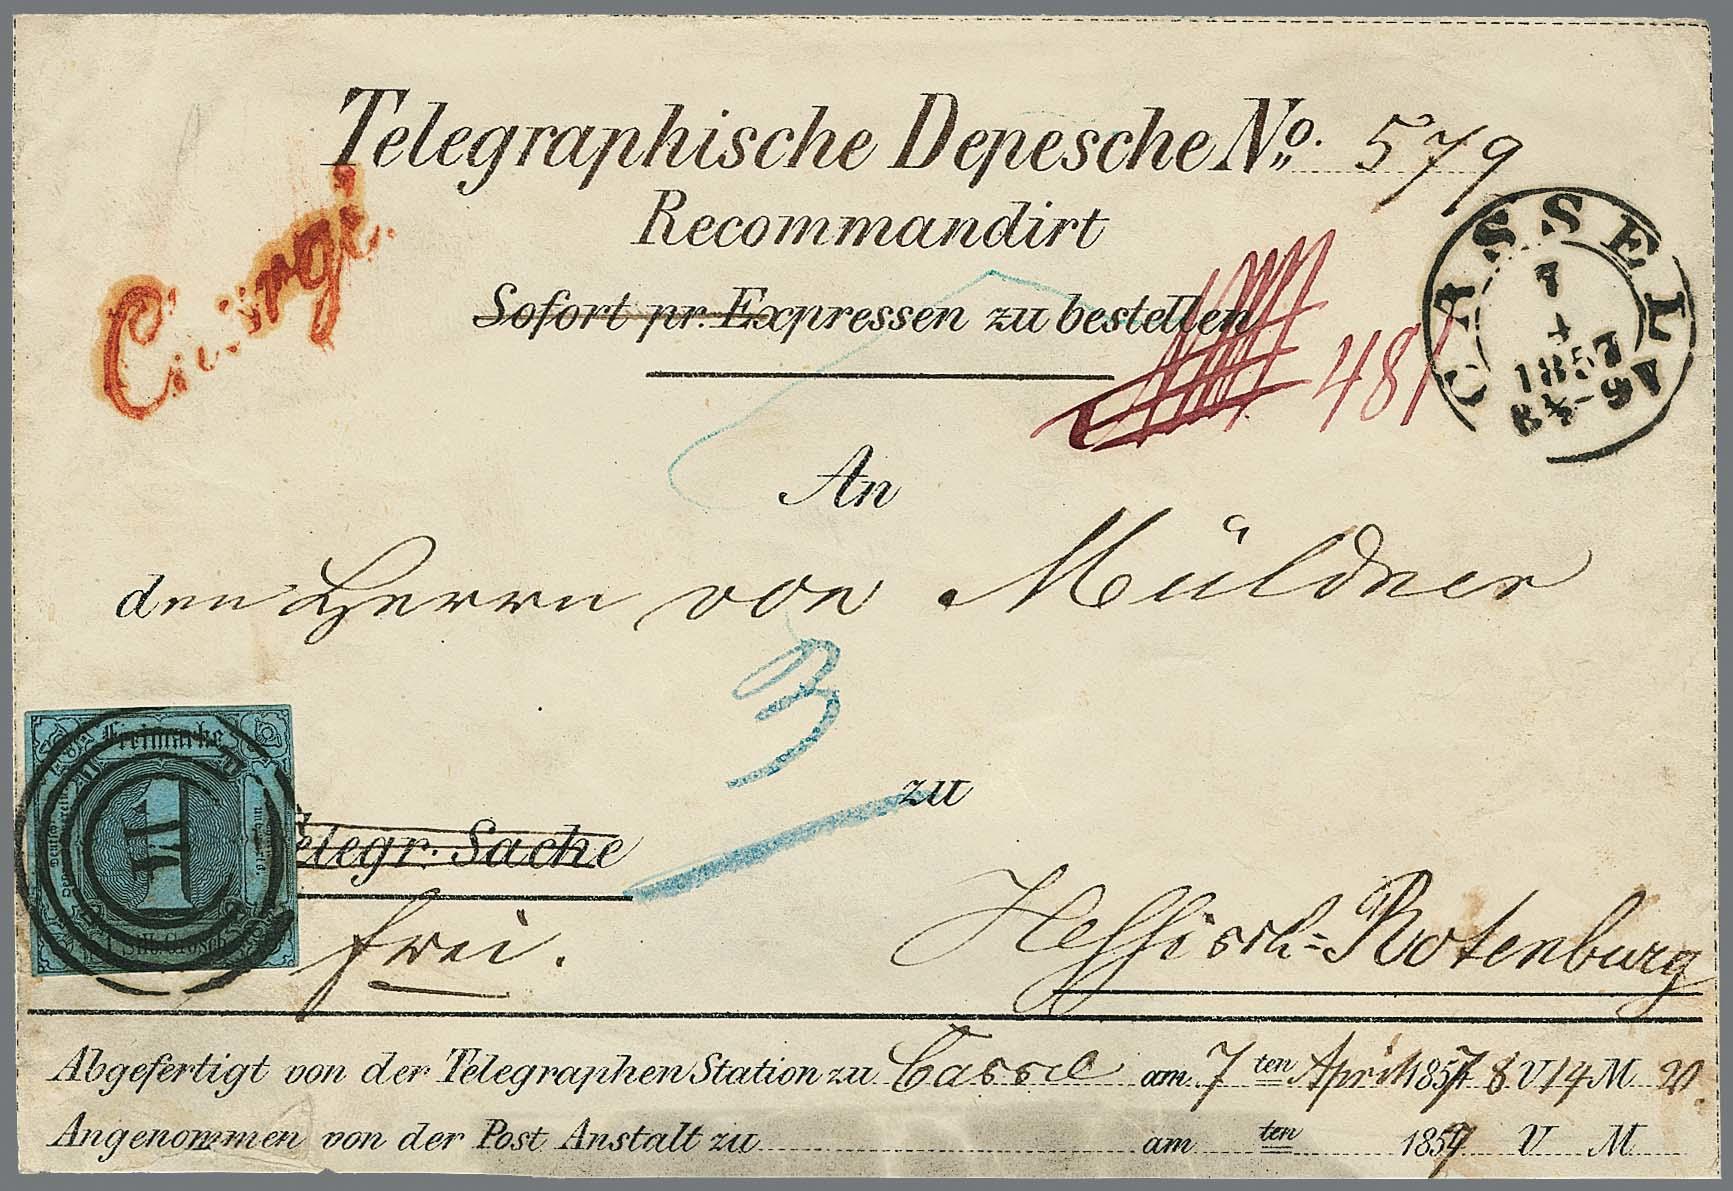 Telegraphische Depesche No. 579
Recommandirt
Sofort pr. Expressen zu bestellen
481
CASSEL
7
4
1857
8¼-9V
An
den Herrn von Müldner
3
zu
Freimarke
1
1 Silb. Grosch.
Telegr. Sache
frei.
Hessisch-Rotenburg
Abgefertigt von der Telegraphen Station zu Cassel am 7 ten April 1857 8 U 14 M
Angenommen von der Post Anstalt zu am ten 1857 U M